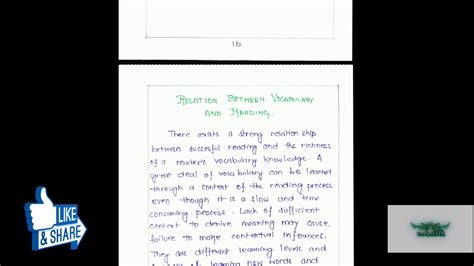 16
RELATION BETWEEN VOCABULARY
AND READING.
There exists a strong relationship
between succesful reading and the richness
of a reader's vocabulary knowledge. A
great deal of vocabulary can be learnt
through a context of the reading process
even though it is a slow and time
consuming process. Lack of sufficient
context to derive meaning may cause
failure to make contextual
They are different learning levels and
of learning new words and
LIKE
& SHARE